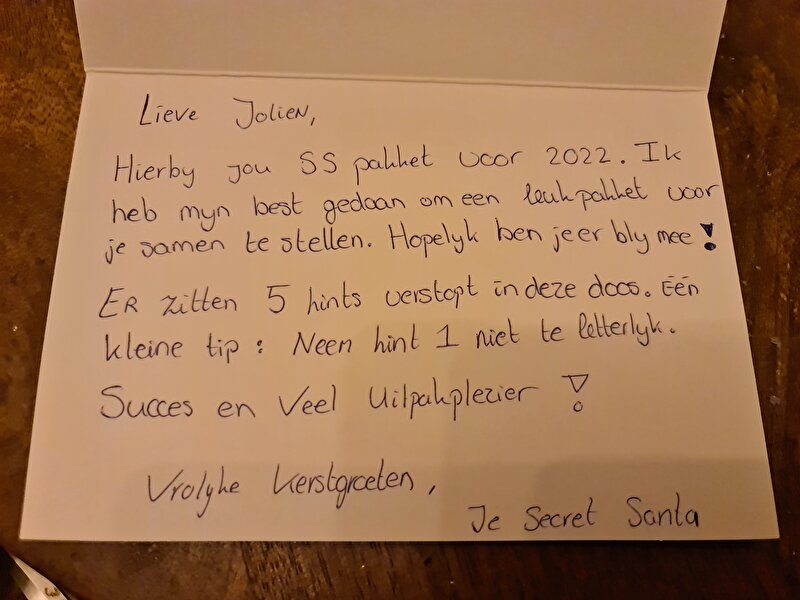 Lieve Jolien,
Hierby jou SS pakket voor 2022. Ik
heb myn best gedaan om een leuk pakket voor
je samen te stellen. Hopelyk ben je er bly mee!
Er zitten 5 hints verstopt in deze doos. Één
kleine tip: Neem hint 1 niet te letterlyk.
Succes en veel uitpakplezier!
Vrolyke kerstgroeten,
Je Secret Santa